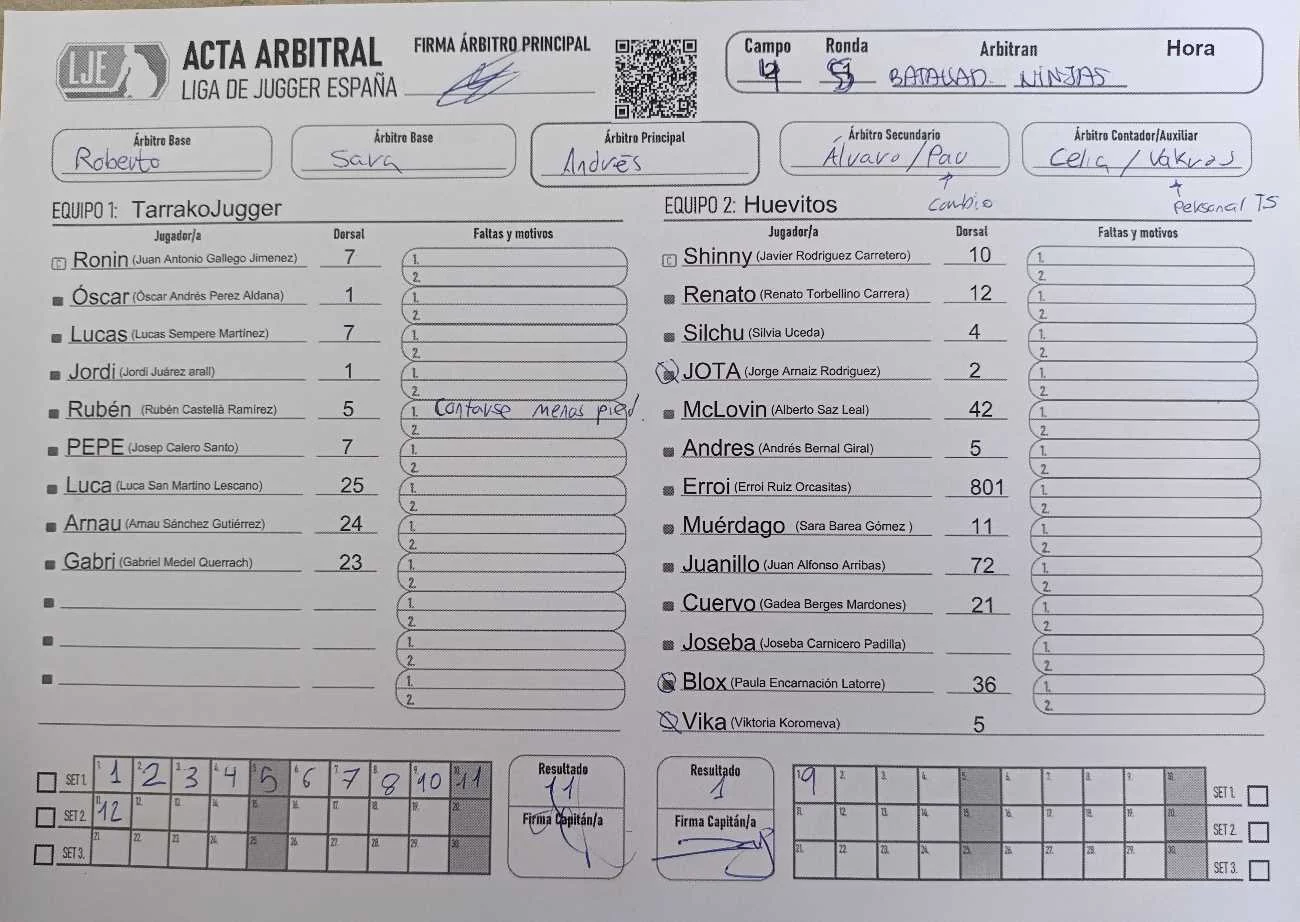 LJE ACTA ARBITRAL
LIGA DE JUGGER ESPAÑA
FIRMA ÁRBITRO PRINCIPAL
Campo Ronda Arbitran Hora
BATALLAD. NINJAS
Árbitro Base
Roberto
Árbitro Base
Sara
Árbitro Principal
Andrés
Árbitro Secundario
Álvaro / Pau
cambio
Árbitro Contador/Auxiliar
Celia / Vakras
personal TS
EQUIPO 1: TarrakoJugger
Jugador/a Dorsal Faltas y motivos
C Ronin (Juan Antonio Gallego Jimenez) 7 1. 2.
Óscar (Óscar Andrés Perez Aldana) 1 1. 2.
Lucas (Lucas Sempere Martínez) 7 1. 2.
Jordi (Jordi Juárez arall) 1 1. 2.
Rubén (Rubén Castellà Ramirez) 5 1. Contarse menos pied. 2.
PEPE (Josep Calero Santo) 7 1. 2.
Luca (Luca San Martino Lescano) 25 1. 2.
Arnau (Arnau Sánchez Gutiérrez) 24 1. 2.
Gabri (Gabriel Medel Querrach) 23 1. 2.
1. 2.
1. 2.
1. 2.
EQUIPO 2: Huevitos
Jugador/a Dorsal Faltas y motivos
C Shinny (Javier Rodriguez Carretero) 10 1. 2.
Renato (Renato Torbellino Carrera) 12 1. 2.
Silchu (Silvia Uceda) 4 1. 2.
JOTA (Jorge Arnaiz Rodriguez) 2 1. 2.
McLovin (Alberto Saz Leal) 42 1. 2.
Andres (Andrés Bernal Giral) 5 1. 2.
Erroi (Erroi Ruiz Orcasitas) 801 1. 2.
Muérdago (Sara Barea Gómez ) 11 1. 2.
Juanillo (Juan Alfonso Arribas) 72 1. 2.
Cuervo (Gadea Berges Mardones) 21 1. 2.
Joseba (Joseba Carnicero Padilla) 1. 2.
Blox (Paula Encarnación Latorre) 36 1. 2.
Vika (Viktoria Koromeva) 5
SET 1. 1. 1 2. 2 3. 3 4. 4 5. 5 6. 6 7. 7 8. 8 9. 10 10. 11
SET 2. 11. 12 12. 13. 14. 15. 16. 17. 18. 19. 20.
SET 3. 21. 22. 23. 24. 25. 26. 27. 28. 29. 30.
Resultado
11
Firma Capitán/a
Resultado
1
Firma Capitán/a
1. 9 2. 3. 4. 5. 6. 7. 8. 9. 10. SET 1.
11. 12. 13. 14. 15. 16. 17. 18. 19. 20. SET 2.
21. 22. 23. 24. 25. 26. 27. 28. 29. 30. SET 3.